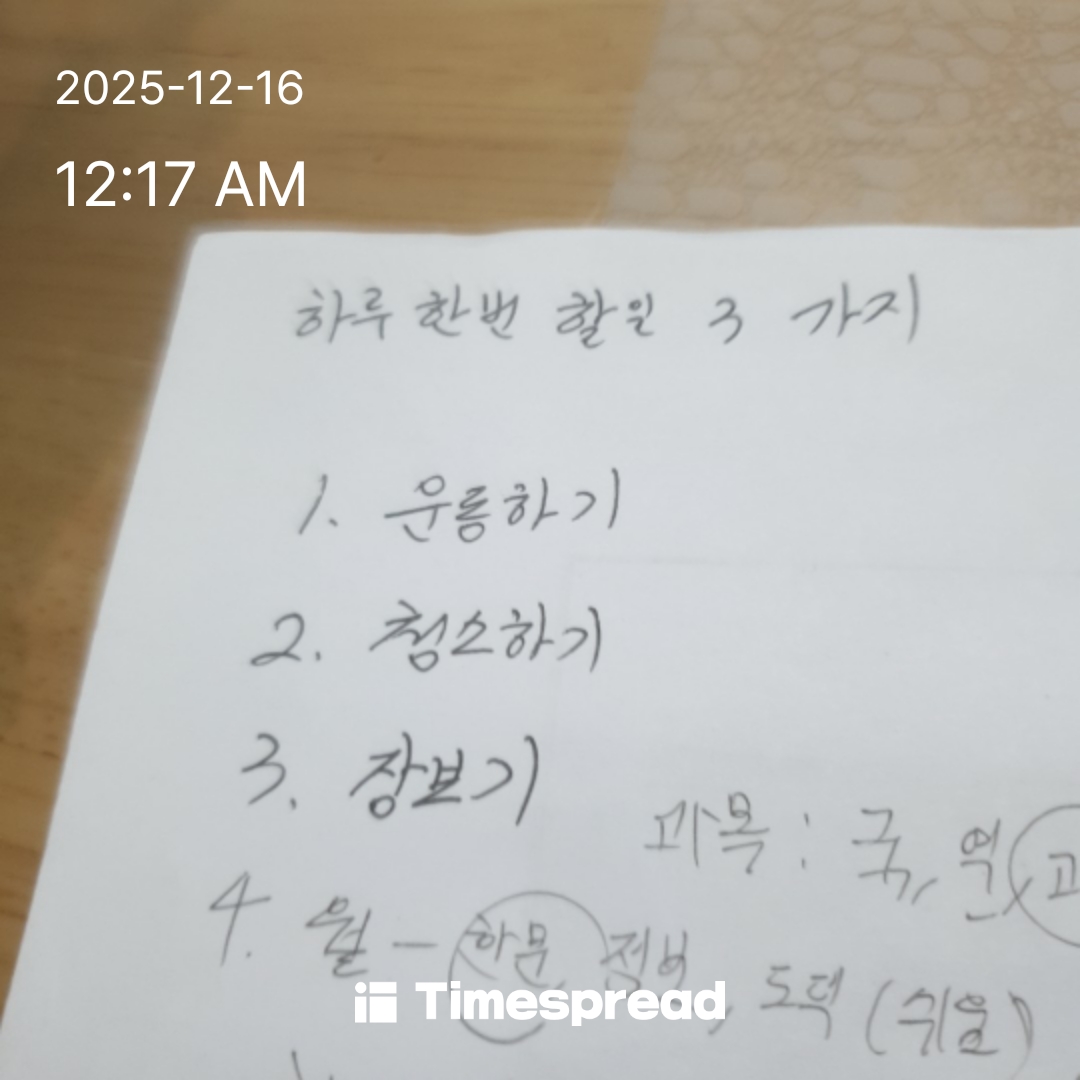 2025-12-16
12:17 AM
하루 한번 할일 3 가지
1. 운동하기
2. 청소하기
3. 장보기
과목 : 국, 역
4. 월 - 한문 정보, 도덕 (쉬움)
Timespread